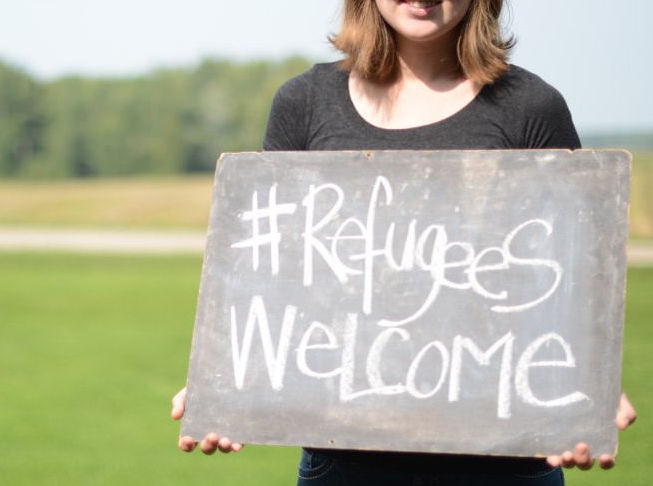 #Refugees
Welcome